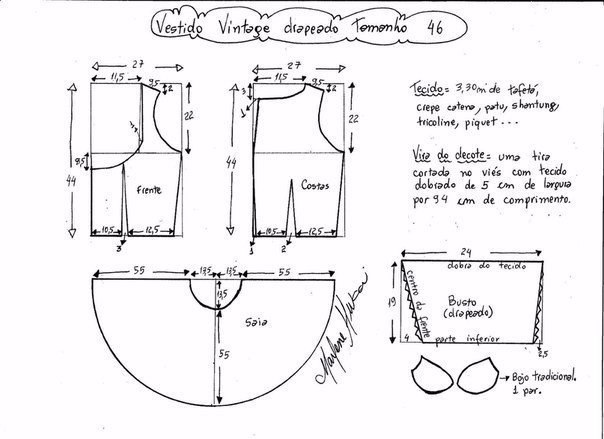 Vestido Vintage drapeado Tamanho 46
27
11,5
9,5
2
22
44
9,5
Frente
10,5
12,5
3
27
11,5
9,5
2
3
1
22
44
Costas
10,5
12,5
1
2
Tecido = 3,30m de tafetá,
crepe catena, patu, shantung,
tricoline, piquet ...
Vira do decote = uma tira
cortada no viés com tecido
dobrado de 5 cm de largura
por 94 cm de comprimento.
55
13,5
13,5
55
13,5
Saia
55
Marlene Mukai
24
dobra do tecido
19
centro da frente
Busto
(drapeado)
4
parte inferior
2,5
Bojo tradicional.
1 par.